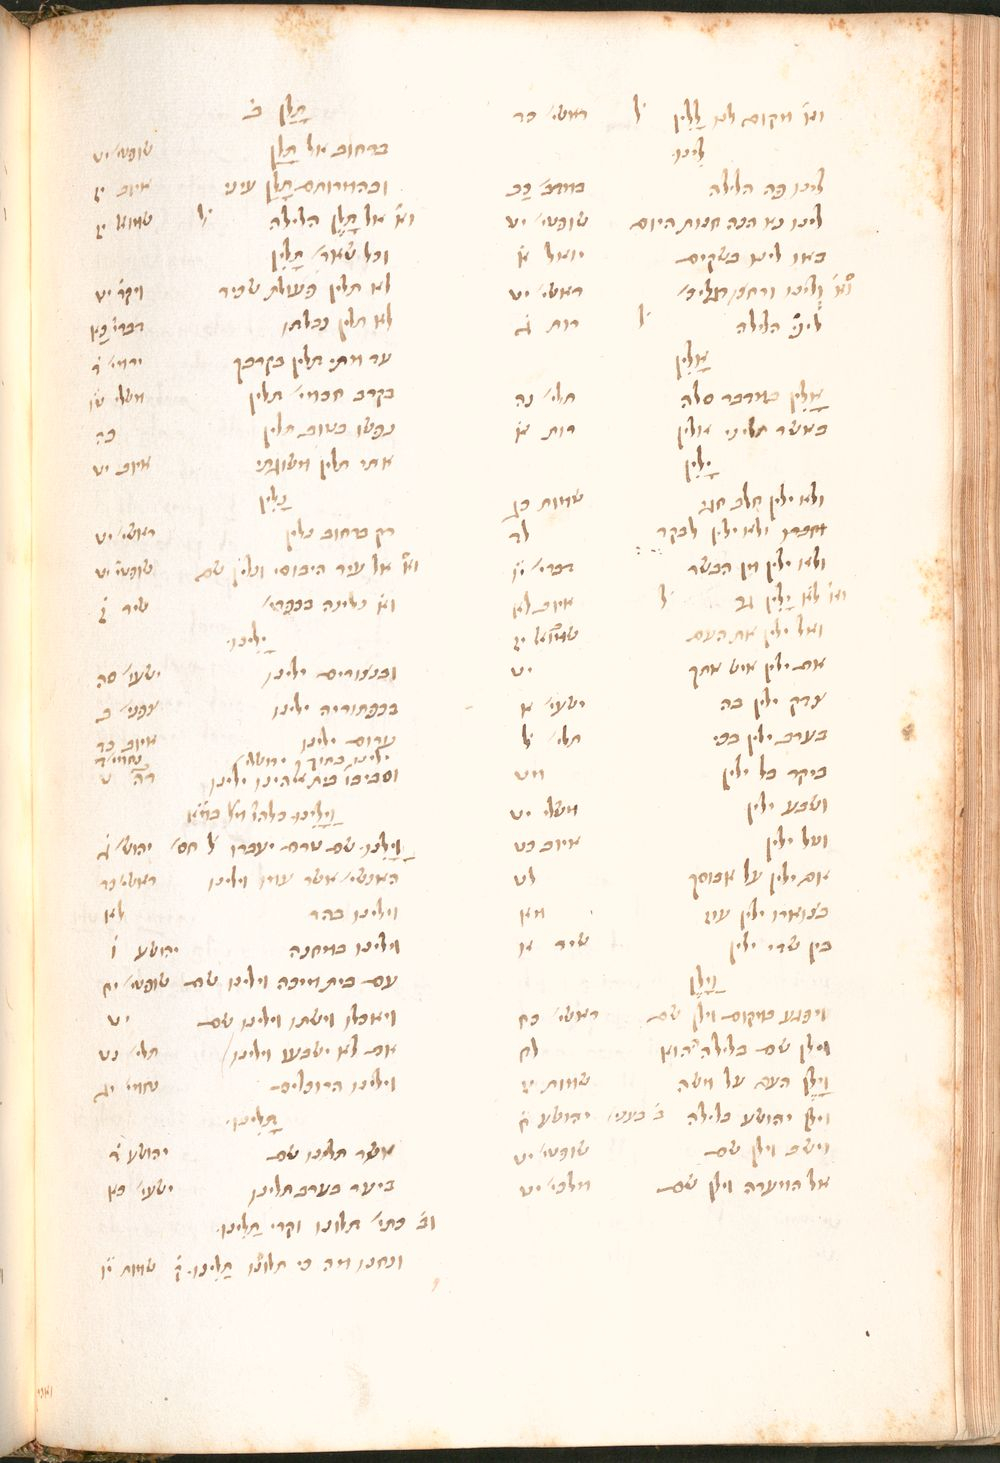 וא׳ מקום לנו ללין ל׳ ראשי׳ כד
לינו
לינו פה הלילה במדב׳ כב
לינו נא הנה חנות היום שופטי׳ יט
באו לינו בשקים יואל א׳
וא׳ ולינו ורחצו רגליכ׳ ראשי׳ יט
ליני הלילה ל׳ רות ג׳
אלין
אלין במדבר סלה תלי׳ נה
באשר תליני אלין רות א׳
ילין
ולא ילין חלב חגי שמות כג
ולא ילין לבקר לד
ולא ילין מן הבשר דברי׳ יו
וא׳ לא ילין גר ל׳ איוב לא
ואל ילין את העם שמואל יז
אם ילין איש אתך יט
צדק ילין בה ישעי׳ א
בערב ילין בכי תלי׳ ל׳
ביקר בל ילין מט
ושבע ילין משלי יט
וטל ילין איוב כט
אם ילין על אבוסך לט
בצוארו ילין עוז מא
בין שדי ילין שיר א׳
וילן
ויפגע במקום וילן שם ראשי׳ כח
וילן שם בלילה הוא לב
וילן העם על משה שמות יז
וילן יהושע בלילה ב׳ בעני׳ יהושע ח׳
וישב וילן שם שופטי׳ יט
אל המערה וילן שם מלכי׳ יט
תלן ב׳
ברחוב אל תלן שופטי׳ יט
ובהמרותם תלן עיני איוב יז
וא׳ אל תלן הלילה ל׳ שמואל יז
וכל שאר׳ תלין
לא תלין פעולת שכיר ויקר׳ יט
לא תלין נבלתו דברי׳ כא
עד מתי תלין בקרבך ירמי׳ ד׳
בקרב חכמי׳ תלין משלי טו
נפשו בטוב תלין כה
אתי תלין משוגתי איוב יט
נלין
רק ברחוב נלין ראשי׳ יט
וא׳ אל עיר היבוסי ונלין שם שופטי׳ יט
וא׳ נלינה בכפרי׳ שיר ז׳
ילינו
ובנצורים ילינו ישעי׳ סה
בכפתוריה ילינו צפני׳ ב
ערום ילינו איוב כד
ילינו בתוך ירושלי׳ נחמי׳ ד
וסביבו׳ בית אלהינו ילינו דה׳ ט
וילינו שם טרם יעברו ל׳ חס׳ יהוש׳ ג׳
האנשי׳ אשר עמו וילינו ראשי׳ כד
וילינו בהר לא
וילינו במחנה יהושע ו׳
עם בית מיכה וילינו שם שופטי׳ יח
ויאכלו וישתו וילינו שם יט
אם לא ישבעו וילינו תלי׳ נט
וילינו הרוכלים נחמי׳ יג
תלינו
אשר תלינו שם יהושע ד׳
ביער בערב תלינו ישעי׳ כא
וב׳ כתי׳ תלונו וקרי תלינו
ונחנו מה כי תלונו תלינו ק׳ שמות יו